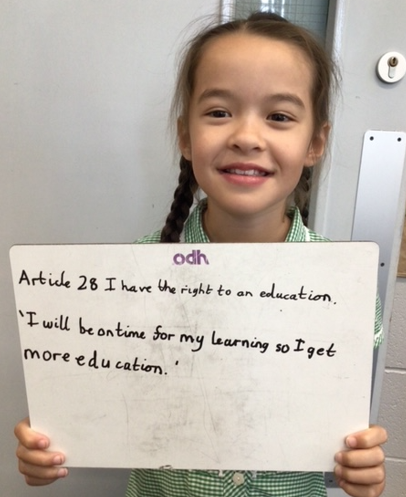 odh
Article 28 I have the right to an education.
'I will be on time for my learning so I get
more education.'